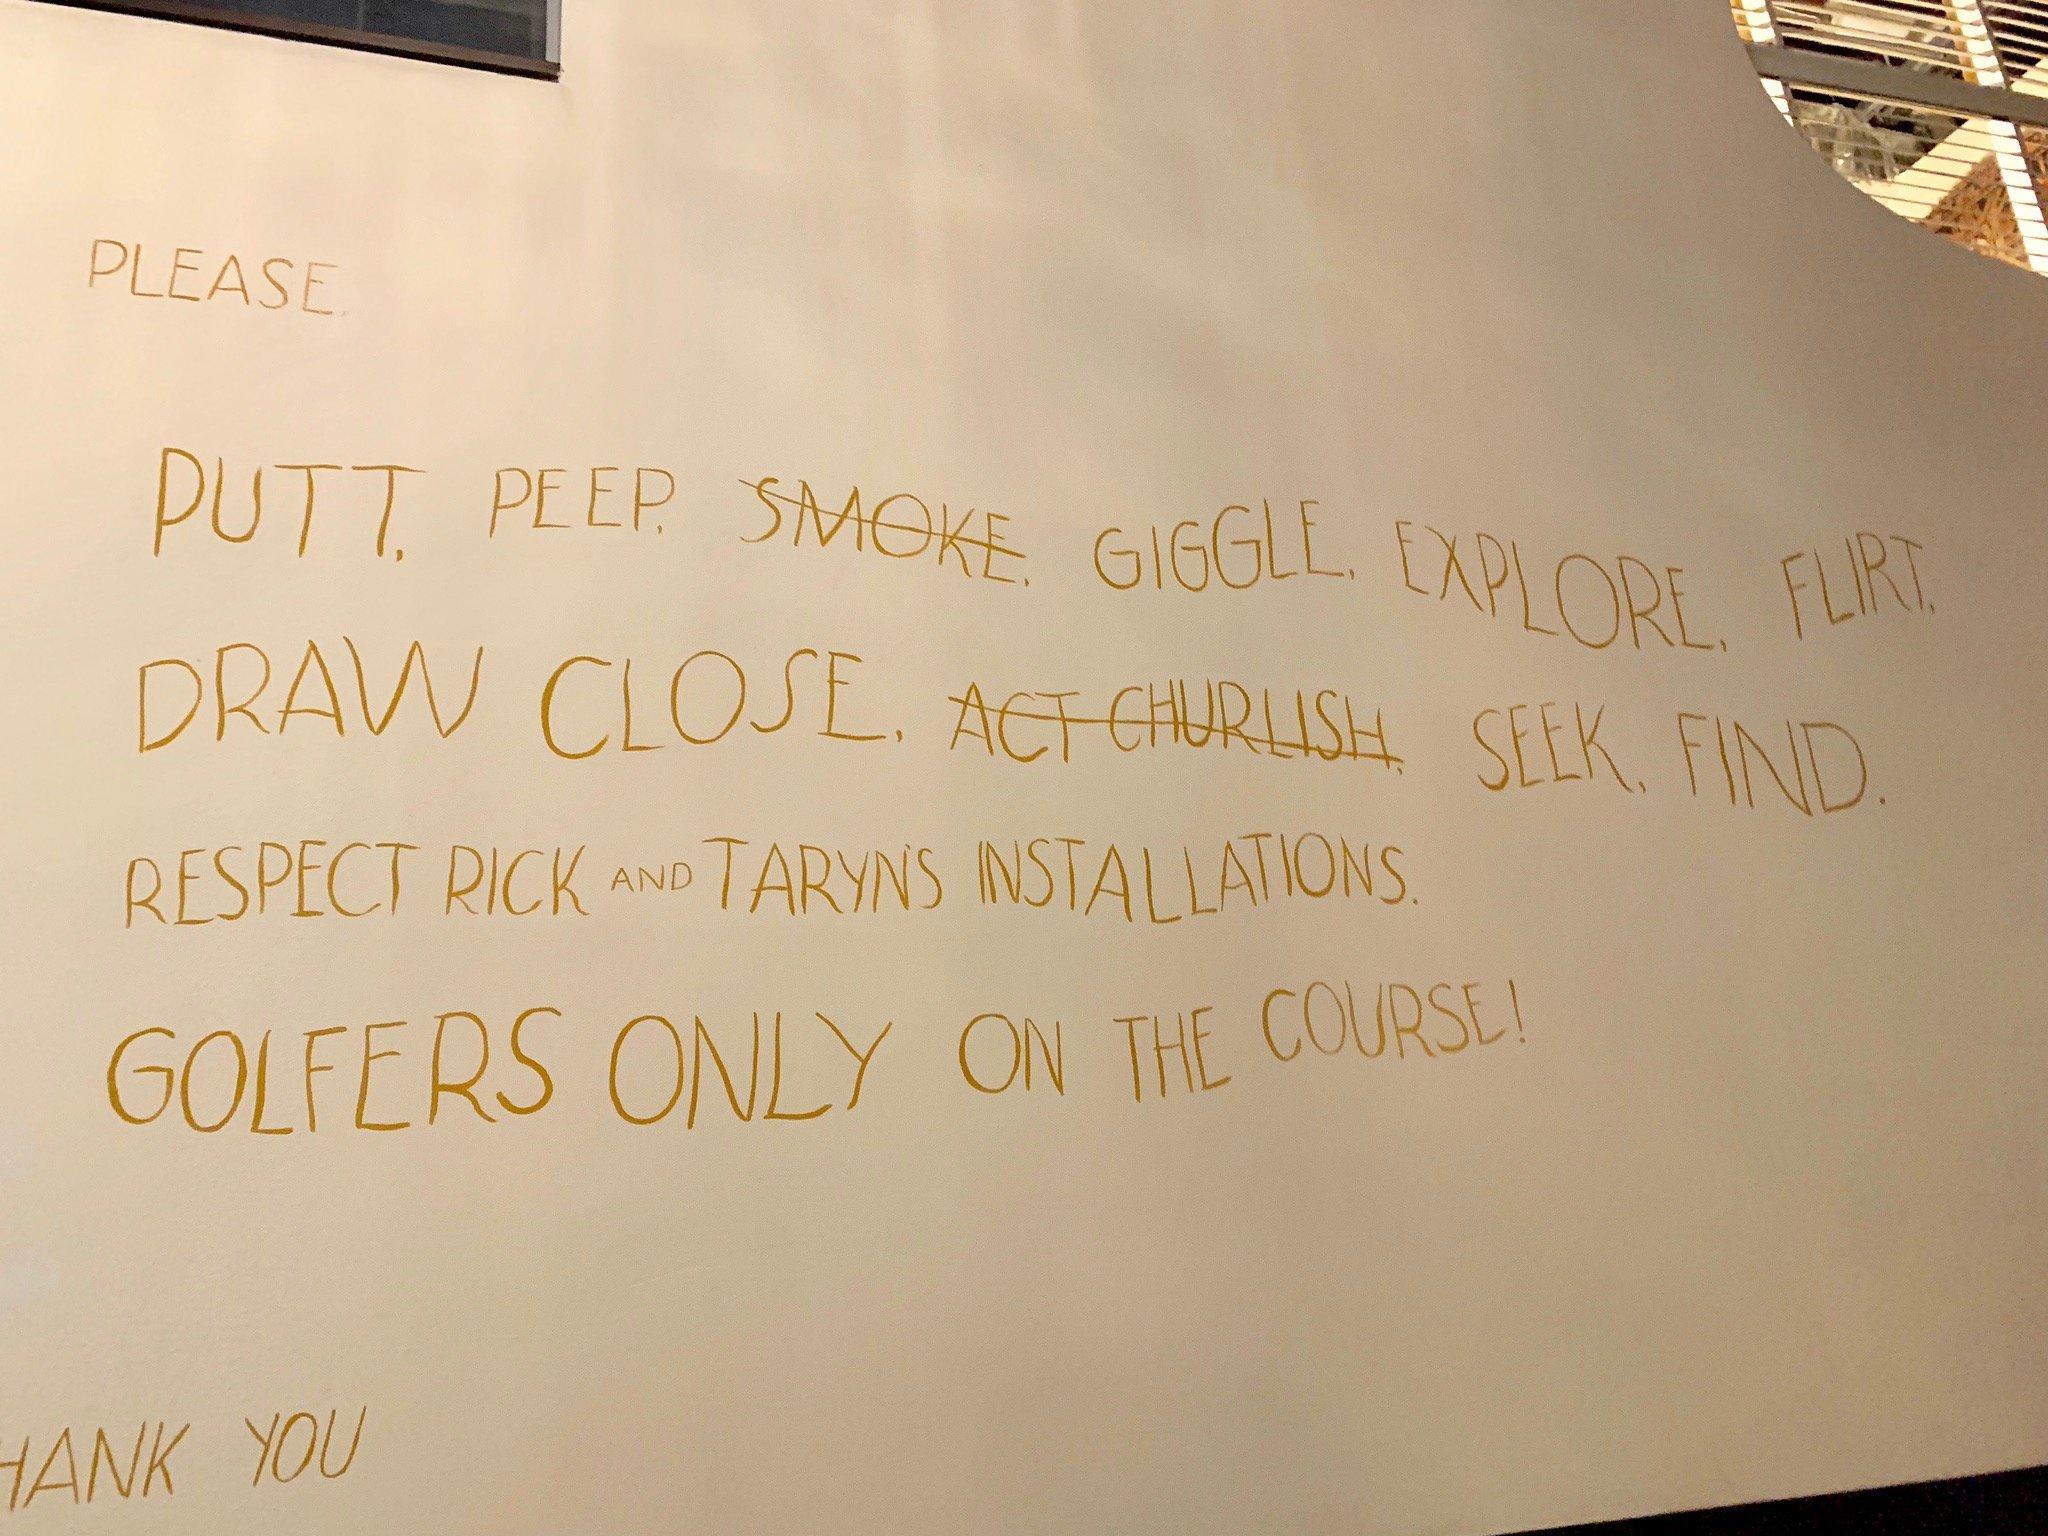 PLEASE.
PUTT. PEEP. SMOKE. GIGGLE. EXPLORE. FLIRT.
DRAW CLOSE. ACT CHURLISH. SEEK. FIND.
RESPECT RICK AND TARYN'S INSTALLATIONS.
GOLFERS ONLY ON THE COURSE!
HANK YOU